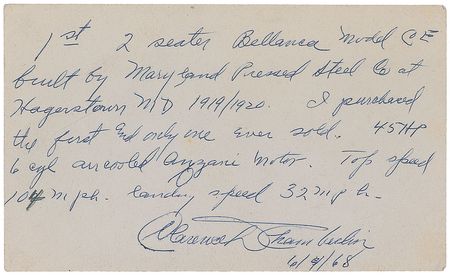 1st 2 seater Bellanca Model CE
built by Maryland Pressed Steel Co at
Hagerstown MD 1919/1920. I purchased
the first and only one ever sold. 45HP
6 cyl aircooled Anzani Motor. Top speed
104 mph. landing speed 32 mph.
Clarence D Chamberlin
6/9/68